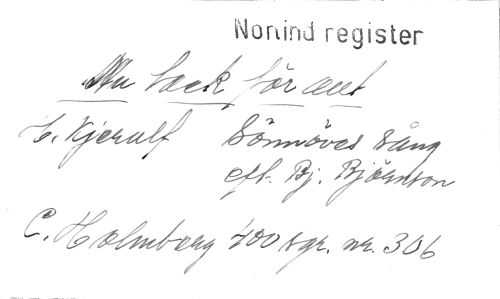 Nonind register
Nu tack för allt
H. Kjerulf Sönnöves Sång
eft. Bj. Björnson
C. Holmberg 400 sgr. nr. 306